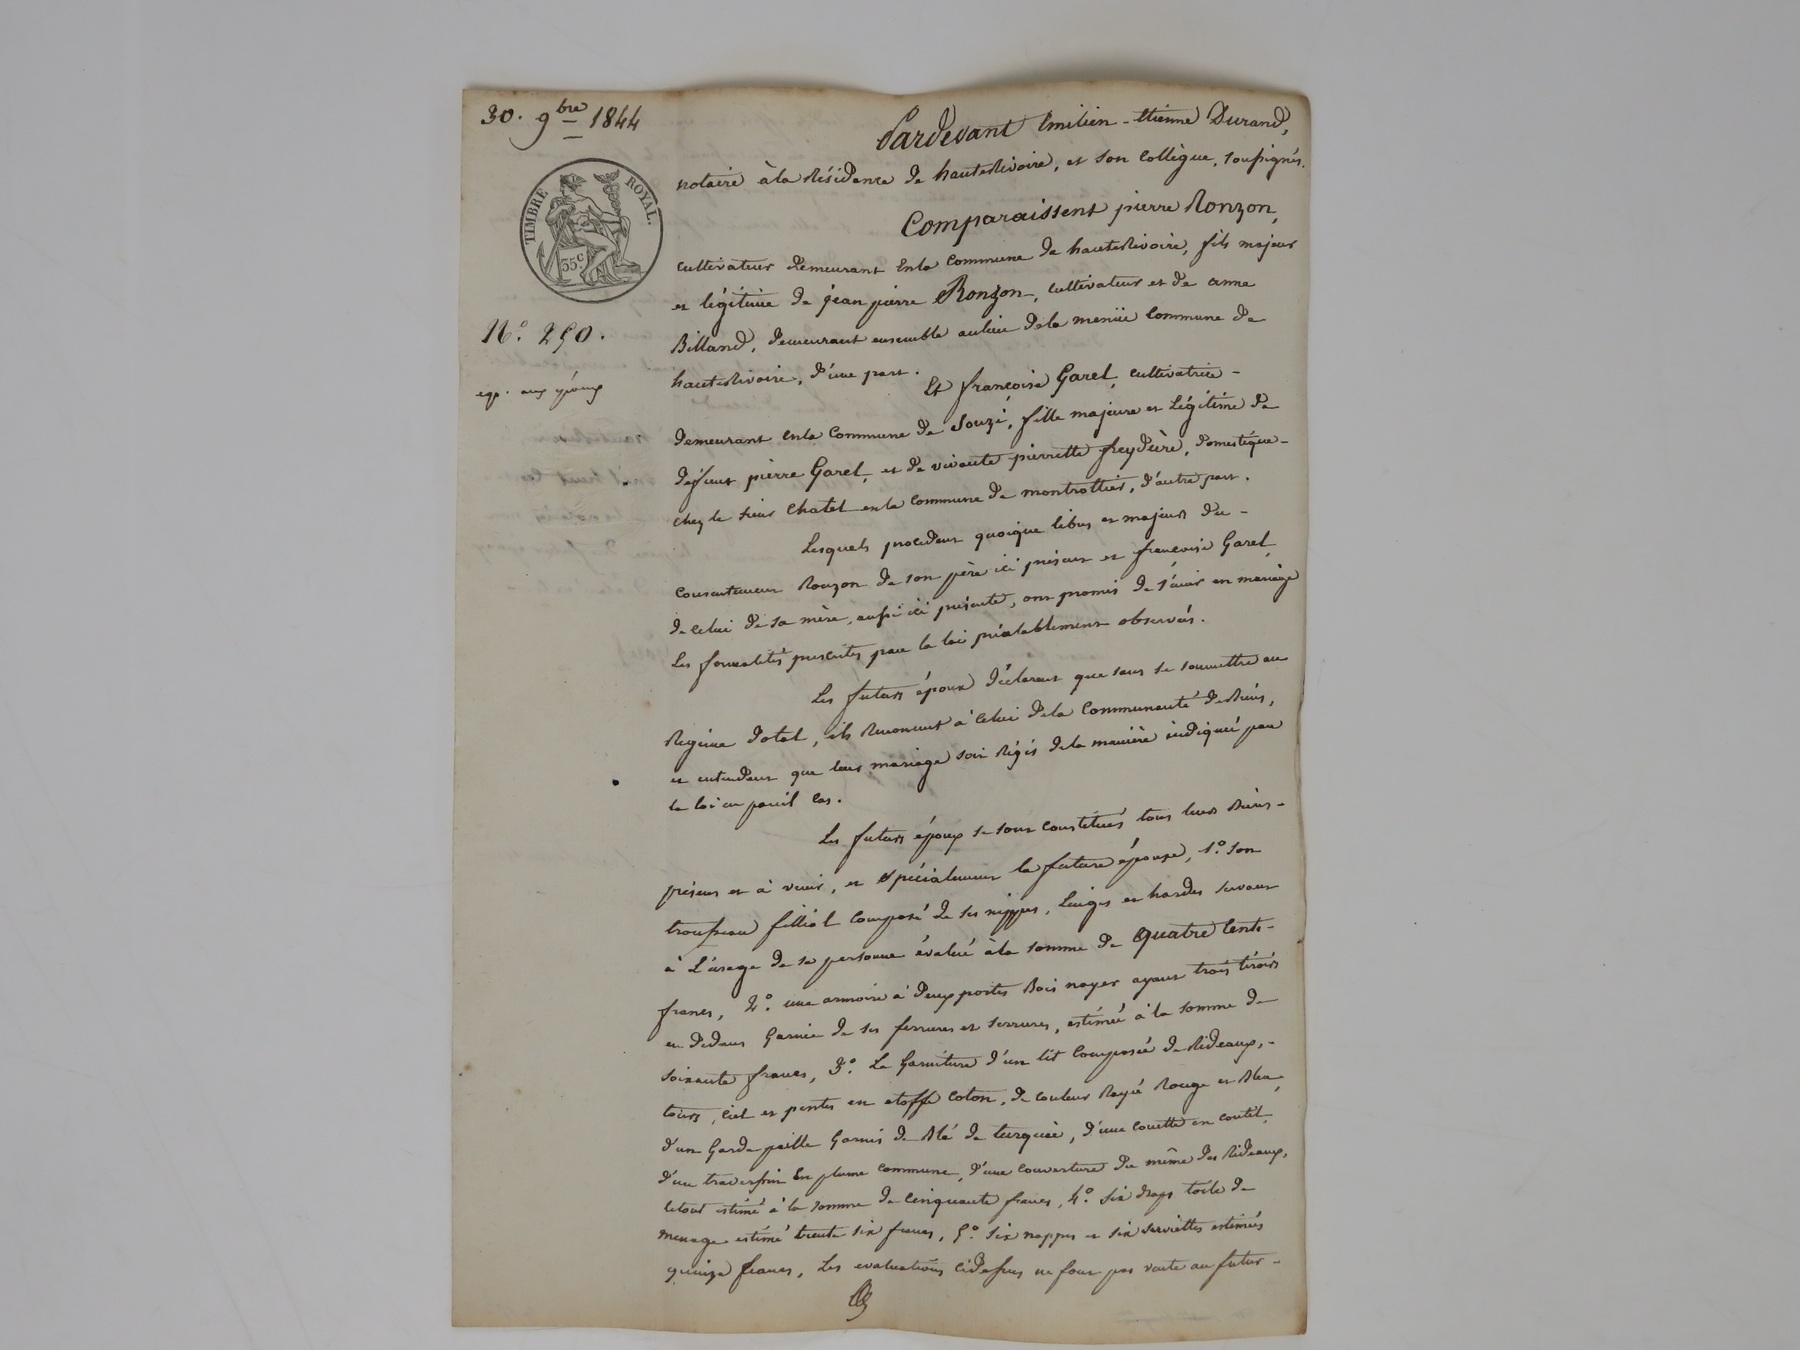 30. 9bre 1844
TIMBRE ROYAL.
35c
N.o 250.
exp. aux époux
Pardevant Emilien-Etienne Durand,
notaire à la Résidence de hauterivoire, et son collègue, soussignés.
Comparaissent pierre Ronzon,
cultivateur demeurant Enla Commune de hauterivoire, fils majeur
et légitime de jean pierre Ronzon, cultivateur et de anne
Billand, demeurant ensemble aulieu dela menüe Commune de
hauterivoire, d'une part.
Et françoise Garel, cultivatrice -
demeurant enla Commune de Souzi, fille majeure et Légitime de
défunt pierre Garel, et de vivante pierrette freydière, domestique -
chez le sieur Chatel enla Commune de montrottier, d'autre part.
Lesquels procédant quoique libres et majeurs du -
consentement Ronzon de son père ici présent et françoise Garel
de celui de sa mère, aussi ici présente, ont promis de s'unir en mariage
Les formalités prescrites par la loi préalablement observées.
Les futurs époux déclarent que sans se soumettre au
Régime dotal, ils Renoncent à celui dela Communauté de Biens,
et entendent que leur mariage soit Régis dela manière indiquée par
la loi en pareil cas.
Les futurs époux se sont constitués tous leurs Biens -
présens et à venir, et spécialement la future épouse, 1.o son
trousseau fillial composé de ses nippes, Linges et hardes servant
à L'usage de sa personne évalué àla somme de quatre Cents -
francs, 2.o une armoire à deux portes Bois noyer ayant trois tiroirs
en dedans Garnie de ses ferrures et serrures, estimée à la somme de
soixante francs, 3.o La Garniture d'un lit Composée de Rideaux, -
tours, ciel et pentes en etoffe coton, de couleur Rayé Rouge et Bleu,
d'un Garde paille Garni de Blé de turquie, d'une couette en coutil,
d'un traversin En plume commune, d'une couverture du même des Rideaux,
letout estimé à la somme de cinquante francs, 4.o six draps toile de
menage estimé trente six francs, 5.o six nappes et six serviettes estimées
quinze francs, Les evaluations cidessus ne font pas vente au futur -